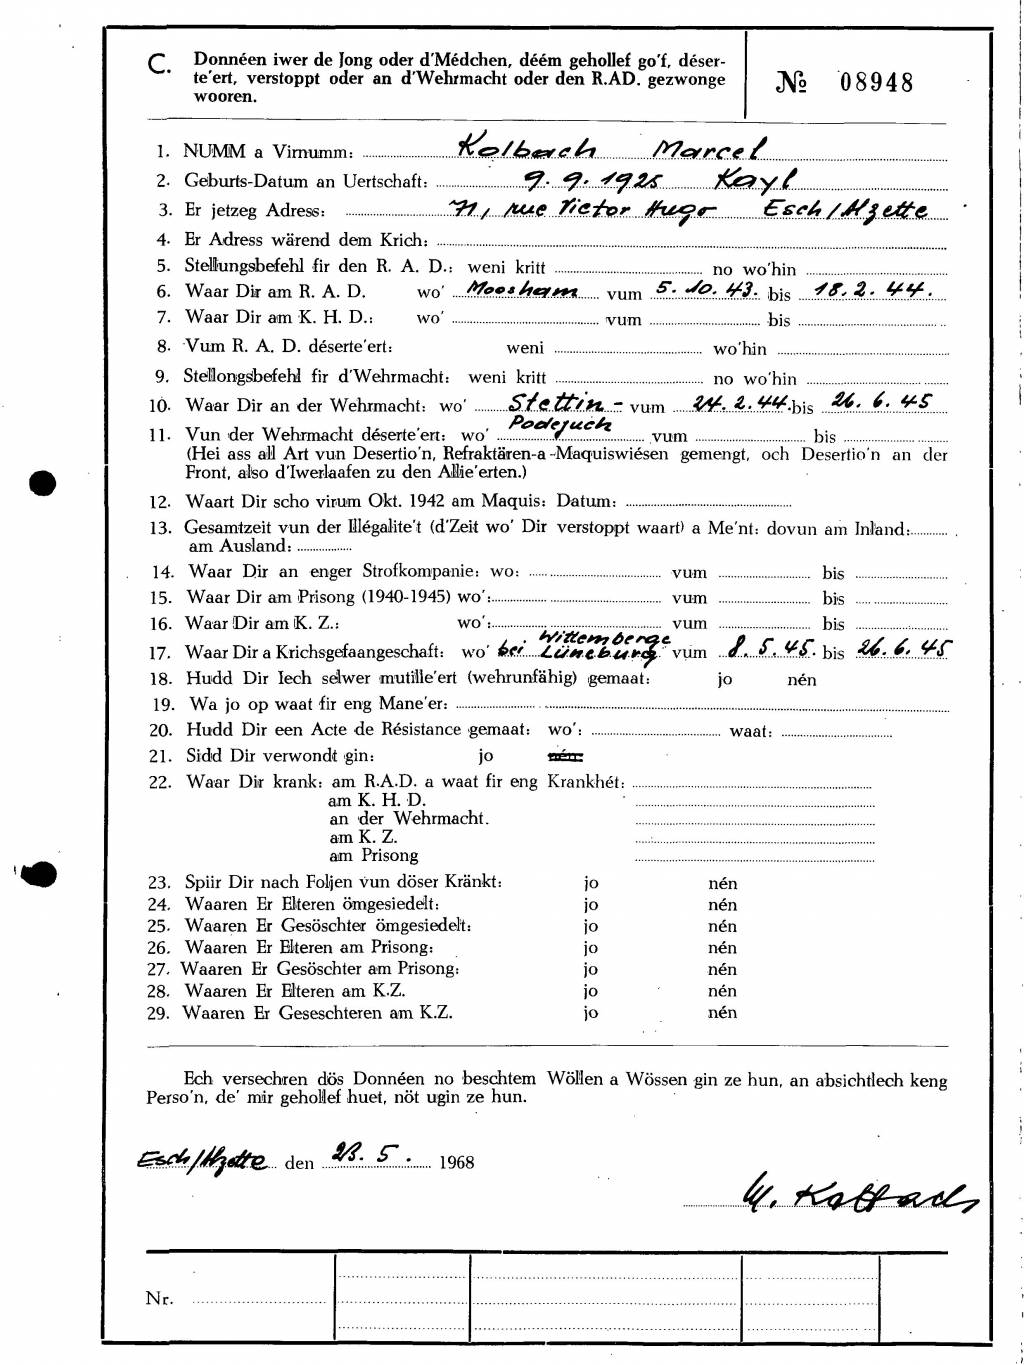 C. Donnéen iwer de Jong oder d'Médchen, déém gehollef go'f, déser-
te'ert, verstoppt oder an d'Wehrmacht oder den R.AD. gezwonge
wooren.
№ 08948
1. NUMM a Virnumm: Kolbach Marcel
2. Geburts-Datum an Uertschaft: 9. 9. 1925 Kayl
3. Er jetzeg Adress: 71, rue Victor Hugo Esch/Alzette
4. Er Adress wärend dem Krich:
5. Stellungsbefehl fir den R. A. D.: weni kritt no wo'hin
6. Waar Dir am R. A. D. wo' Moosham vum 5. 10. 43. bis 18. 2. 44.
7. Waar Dir am K. H. D.: wo' vum bis
8. Vum R. A. D. déserte'ert: weni wo'hin
9. Stellongsbefehl fir d'Wehrmacht: weni kritt no wo'hin
10. Waar Dir an der Wehrmacht: wo' Stettin - vum 24. 2. 44. bis 26. 6. 45
Podejuch
11. Vun der Wehrmacht déserte'ert: wo' vum bis
(Hei ass all Art vun Desertio'n, Refraktären-a-Maquiswiésen gemengt, och Desertio'n an der
Front, also d'Iwerlaafen zu den Allie'erten.)
12. Waart Dir scho virum Okt. 1942 am Maquis: Datum:
13. Gesamtzeit vun der Illégalite't (d'Zeit wo' Dir verstoppt waart) a Me'nt: dovun am Inland:
am Ausland:
14. Waar Dir an enger Strofkompanie: wo: vum bis
15. Waar Dir am Prisong (1940-1945) wo': vum bis
16. Waar Dir am K. Z.: wo': vum bis
Wittemberge
17. Waar Dir a Krichsgefaangeschaft: wo' bei Lüneburg vum 8. 5. 45. bis 26. 6. 45
18. Hudd Dir Iech selwer mutille'ert (wehrunfähig) gemaat: jo nén
19. Wa jo op waat fir eng Mane'er:
20. Hudd Dir een Acte de Résistance gemaat: wo': waat:
21. Sidd Dir verwondt gin: jo nén:
22. Waar Dir krank: am R.A.D. a waat fir eng Krankhét:
am K. H. D.
an der Wehrmacht.
am K. Z.
am Prisong
23. Spiir Dir nach Foljen vun döser Kränkt: jo nén
24. Waaren Er Elteren ömgesiedelt: jo nén
25. Waaren Er Gesöschter ömgesiedelt: jo nén
26. Waaren Er Elteren am Prisong: jo nén
27. Waaren Er Gesöschter am Prisong: jo nén
28. Waaren Er Elteren am K.Z. jo nén
29. Waaren Er Geseschteren am K.Z. jo nén
Ech versechren dös Donnéen no beschtem Wöllen a Wössen gin ze hun, an absichtlech keng
Perso'n, de' mir gehollef huet, nöt ugin ze hun.
Esch/Alzette den 23. 5. 1968
M. Kolbach
Nr.